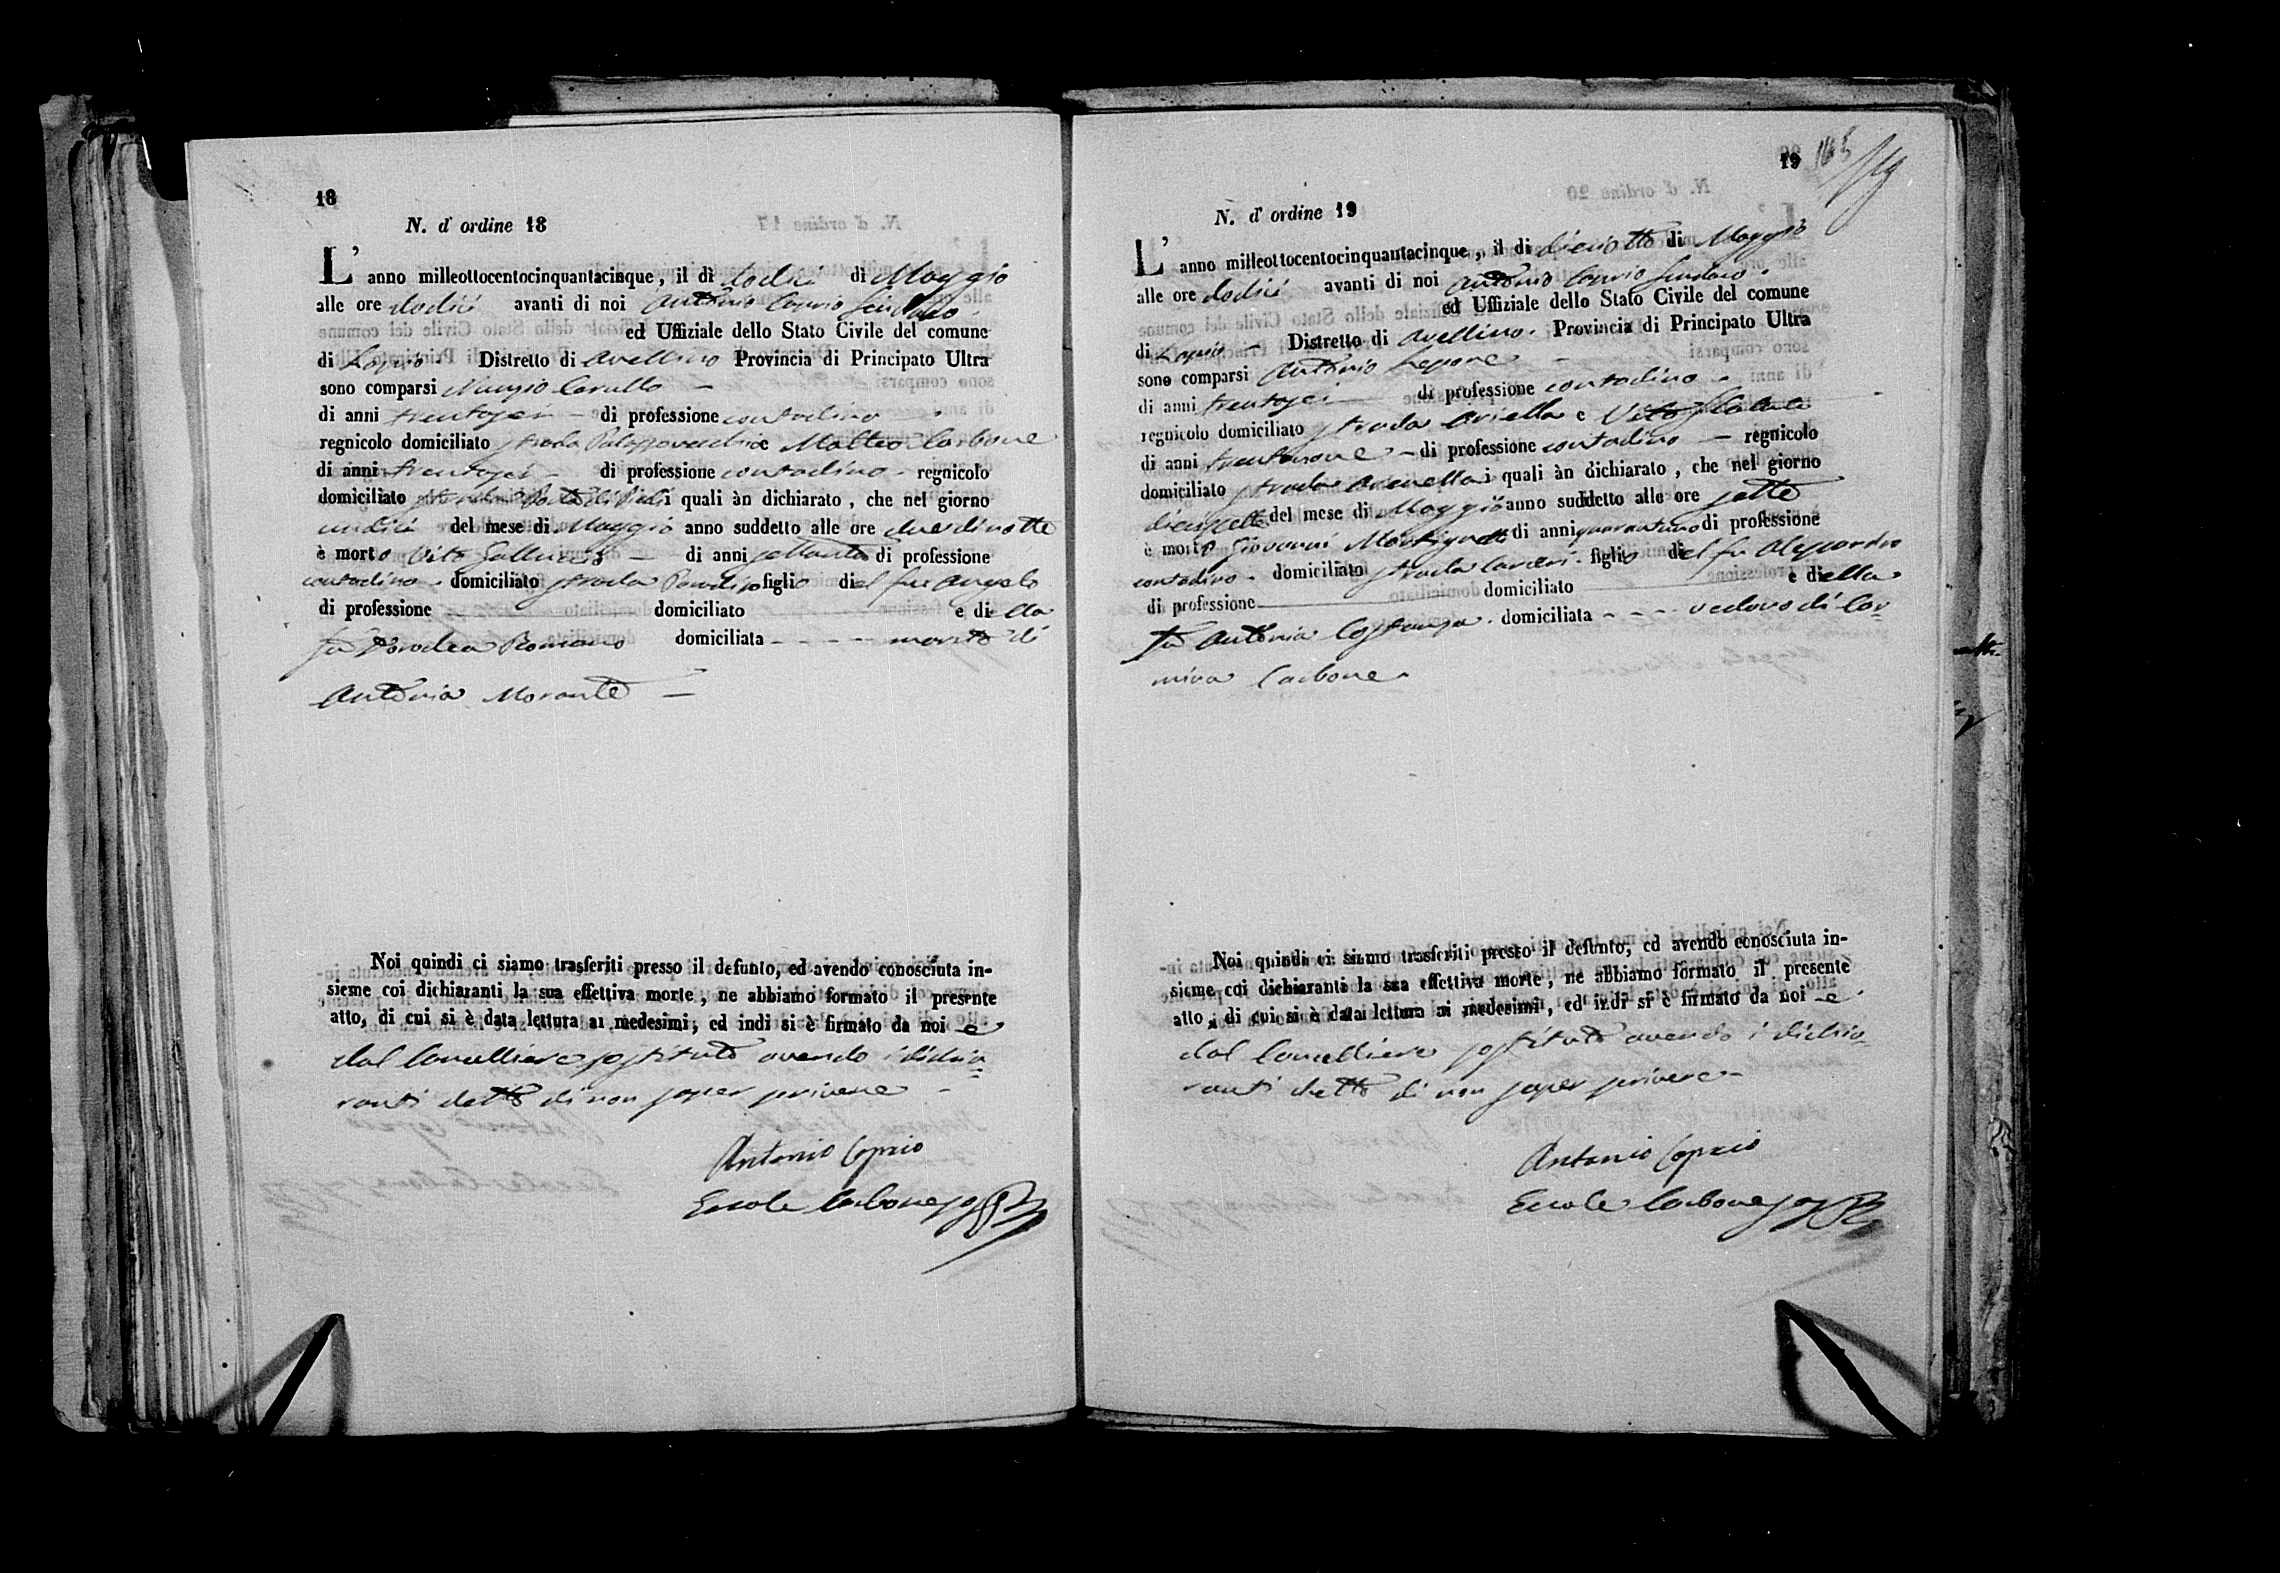 18
N. d' ordine 18
L' anno milleottocentocinquantacinque, il dì dodici di Maggio
alle ore dodici avanti di noi Antonio Caprio Sindaco
ed Uffiziale dello Stato Civile del comune
di Lapio Distretto di Avellino Provincia di Principato Ultra
sono comparsi Nunzio Carullo
di anni trentasei di professione contadino
regnicolo domiciliato strada Palazzovecchio e Matteo Carbone
di anni trentasei di professione contadino regnicolo
domiciliato strada i quali àn dichiarato, che nel giorno
undici del mese di Maggio anno suddetto alle ore due di notte
è morto Vito Galluccio di anni settanta di professione
contadino domiciliato strada figlio del fu Angelo
di professione domiciliato e di ella
fu Dorodea Romano domiciliata - - - - marito di
Antonia Morante
Noi quindi ci siamo trasferiti presso il defunto, ed avendo conosciuta in-
sieme coi dichiaranti la sua effettiva morte, ne abbiamo formato il presente
atto, di cui si è data lettura ai medesimi, ed indi si è firmato da noi e
dal Cancelliere sostituto avendo i dichia=
ranti detto di non saper scrivere
Antonio Caprio
Ercole Carbone
19
165
N. d' ordine 19
L' anno milleottocentocinquantacinque, il dì dieciotto di Maggio
alle ore dodici avanti di noi Antonio Caprio Sindaco
ed Uffiziale dello Stato Civile del comune
di Lapio Distretto di Avellino Provincia di Principato Ultra
sono comparsi Antonio Lepore
di anni trentasei di professione contadino
regnicolo domiciliato strada Ariella e Vito
di anni trentanove di professione contadino regnicolo
domiciliato strada i quali àn dichiarato, che nel giorno
diecisette del mese di Maggio anno suddetto alle ore sette
è morto Giovanni di anni quarantuno di professione
contadino domiciliato strada Carrari figlio del fu Alessandro
di professione domiciliato e di ella
fu Antonia Costanza domiciliata - - - - vedovo di Car=
mina Carbone
Noi quindi ci siamo trasferiti presso il defunto, ed avendo conosciuta in-
sieme coi dichiaranti la sua effettiva morte, ne abbiamo formato il presente
atto, di cui si è data lettura ai medesimi, ed indi si è firmato da noi e
dal Cancelliere sostituto avendo i dichia=
ranti detto di non saper scrivere
Antonio Caprio
Ercole Carbone